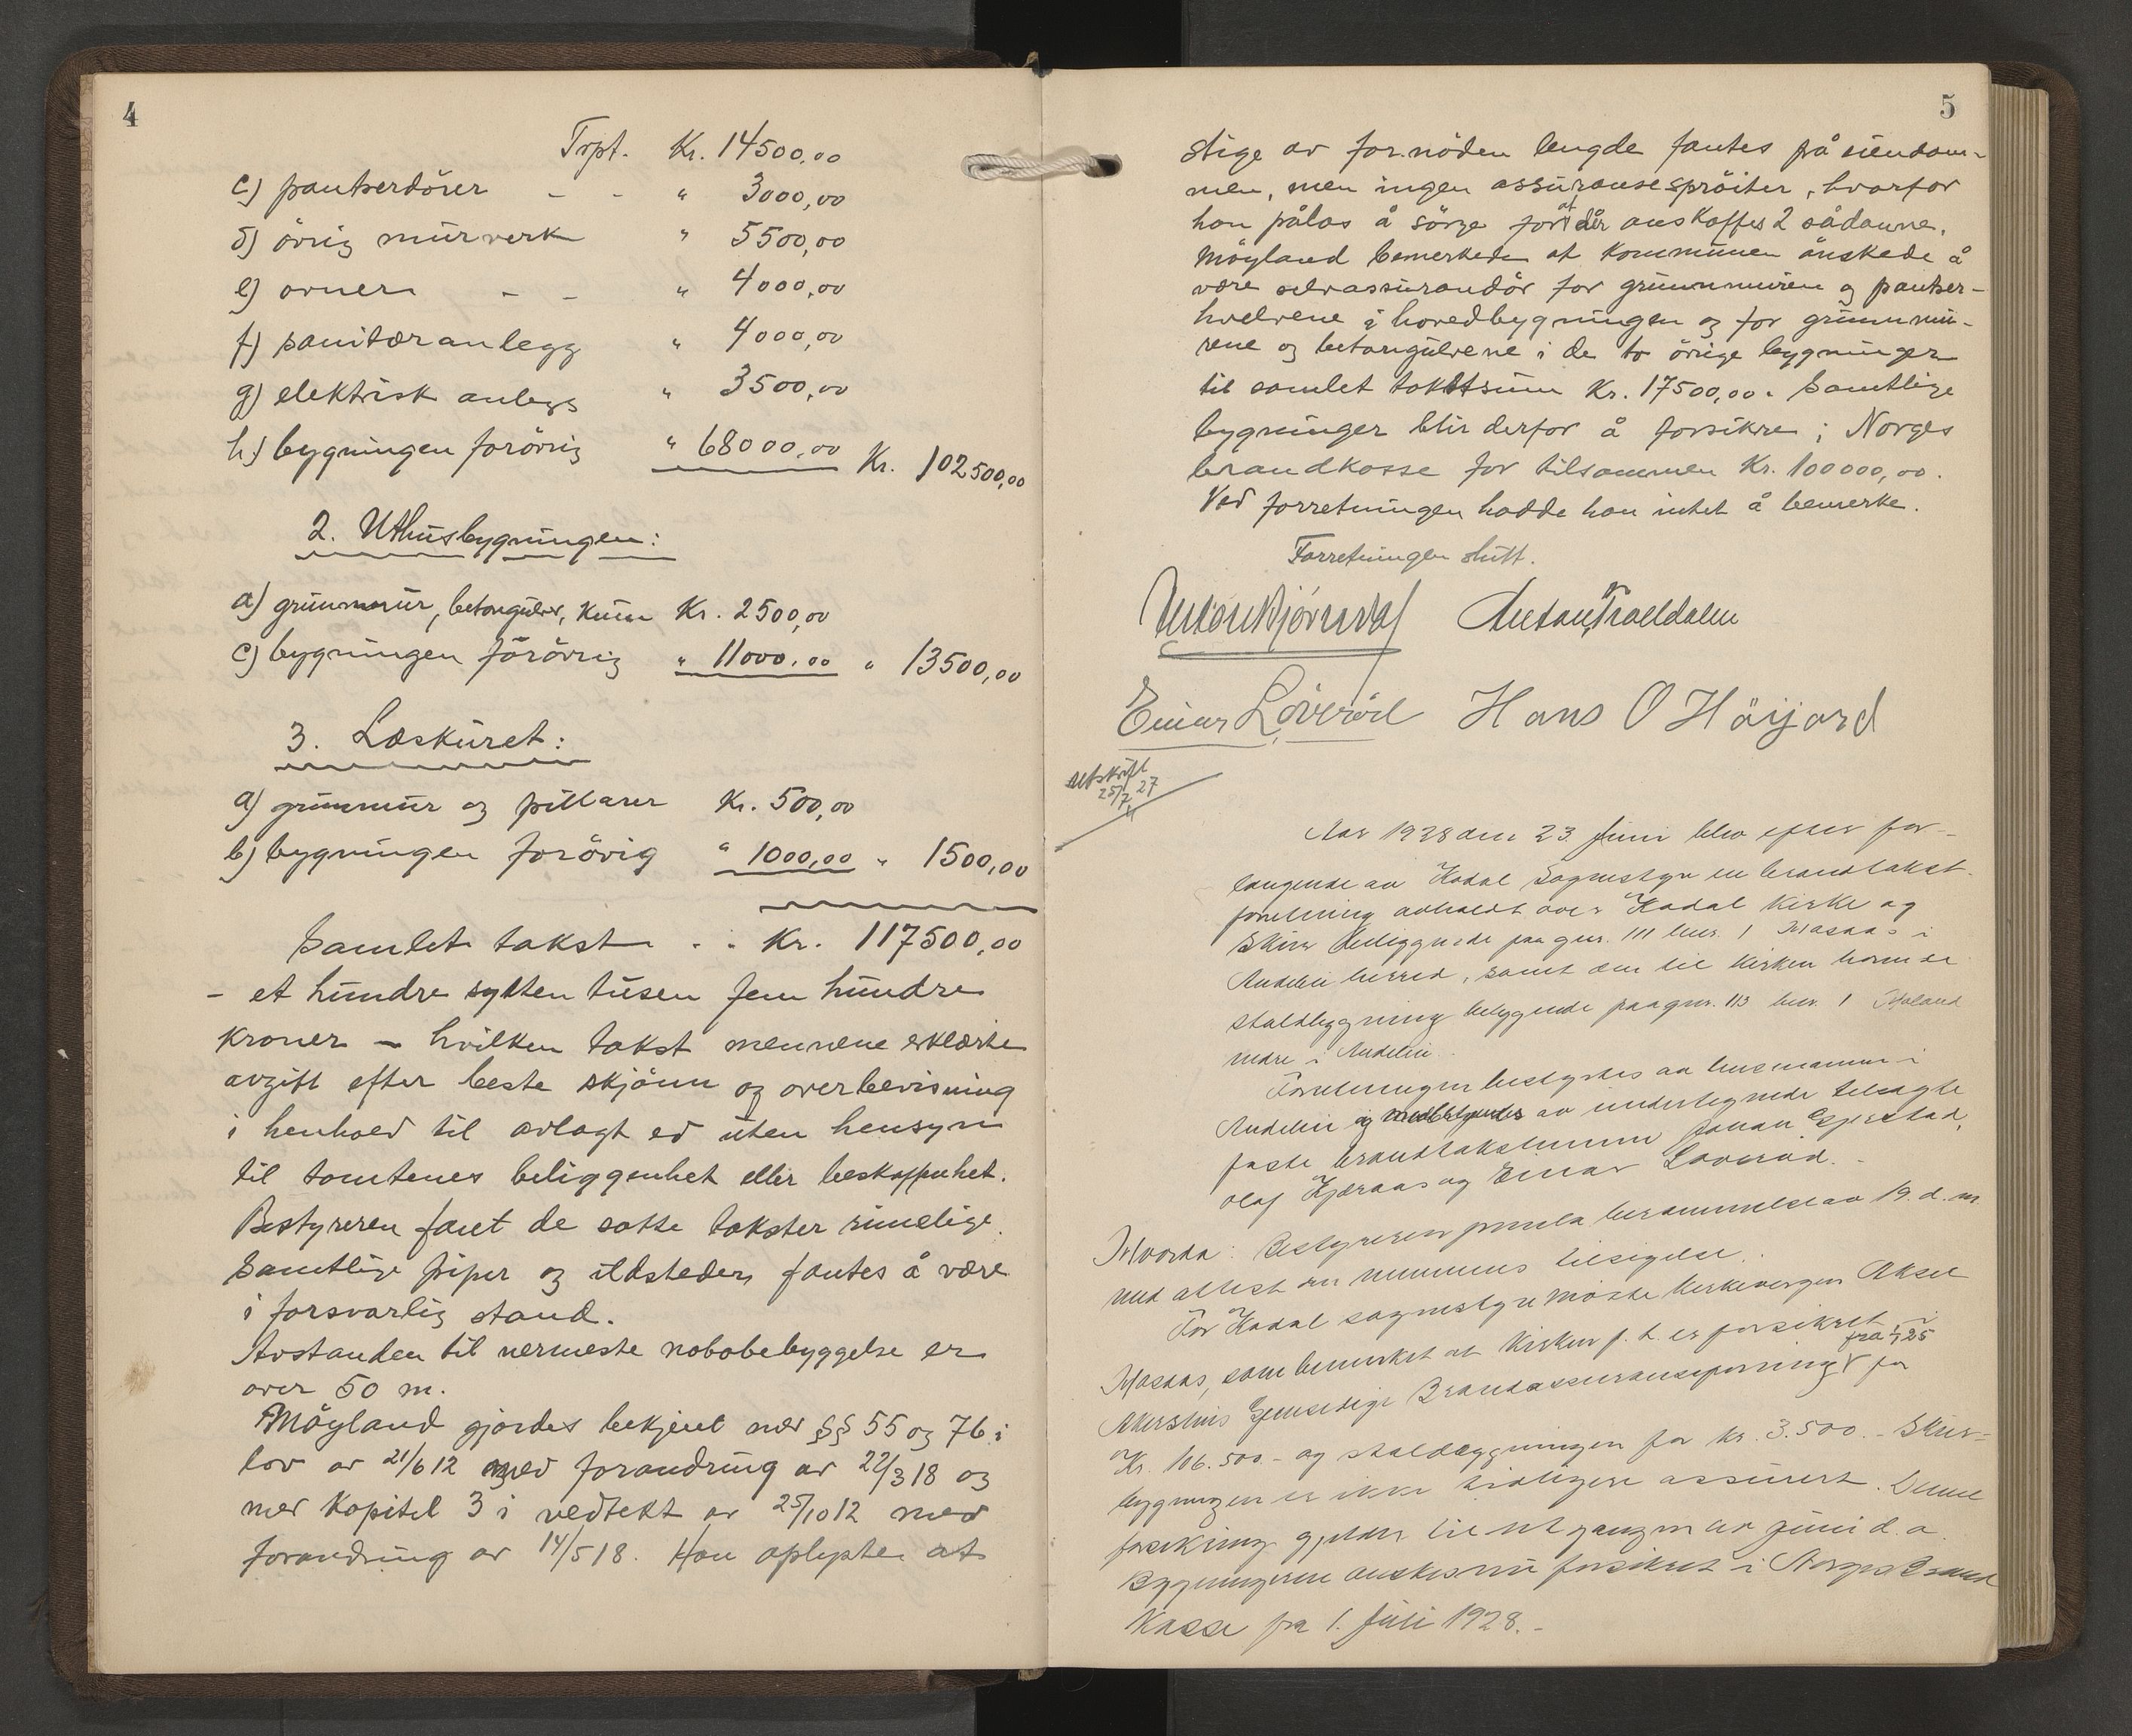 4
Trpt. Kr. 14500,00
c) pantserdörer - - " 3000,00
d) övrig murverk " 5500,00
e) ovner - - " 4000,00
f) sanitæranlegg " 4000,00
g) elektrisk anlegg " 3500,00
h) bygningen forövrig " 68000,00 Kr. 102500,00
2. Uthusbygningen:
a) grunnmur, betongulv, kum Kr. 2500,00
c) bygningen forövrig " 11000,00 " 13500,00
3. Læskuret:
a) grunnmur og pillarer Kr. 500,00
b) bygningen forövrig " 1000,00 " 1500,00
Samlet takst . . Kr. 117500,00
- et hundre sytten tusen fem hundre
kroner - hvilken takst mennene erklærte
avgitt efter beste skjönn og overbevisning
i henhold til avlagt ed uten hensyn
til tomtenes beliggenhet eller beskaffenhet.
Bestyreren fant de satte takster rimelige.
Samtlige piper og ildsteder fantes å være
i forsvarlig stand.
Avstanden til nermeste nabobebyggelse er
over 50 m.
Möyland gjordes bekjent med §§ 55 og 76 i
lov av 21/6 12 med forandring av 22/3 18 og
med kapitel 3 i vedtekt av 25/10 12 med
forandring av 14/5 18. Han oplyste at
5
stige av fornöden lengde fantes på eiendom-
men, men ingen assuransespröiter, hvorfor
han pålas å sörge for at der anskaffes 2 sådanne.
Möyland bemerkede at kommunen önskede å
være selvassurandör for grunnmuren og pantser-
hvelvene i hovedbygningen og for grunnmu-
rene og betongulvene i de to övrige bygninger
til samlet takstsum Kr. 17500,00. Samtlige
bygninger blir derfor å forsikre i Norges
brandkasse for tilsammen Kr. 100000,00.
Ved forretningen hadde han intet å bemerke.
Forretningen slutt.
Anton Trolldalen
Einar Löveröd Hans O Höijord
Utskrift
25/7 27
Aar 1928 den 23 Juni blev efter for-
langende av Kodal Sognestyre en brandtakst-
forretning avholdt over Kodal Kirke og
Skur beliggende paa gnr. 111 bnr. 1 Prestaas i
Andebu herred, samt den til kirken hörende
staldbygning beliggende paa gnr. 113 bnr. 1
nedre i Andebu.
Forretningen bestyrtes av lensmannen i
Andebu og av undertegnede tilsagte
faste brandtakstmenn Johan Gjerstad,
Olaf Kjæraas og Einar Löveröd. -
Bestyreren fremla berammelse av 19. d. m.
med attest om mennenes tilsigelse.
For Kodal sognestyre mötte kirkevergen Aksel
som bemerket at kirken p. t. er forsikret i
Akershus Gjensidige Brandassuranseforening fra 1/7 25 for
Kr. 106.500.- og staldbygningen for kr. 3.500.- Skur-
bygningen er ikke tidligere assurert. Denne
forsikring gjelder til utgangen av juni d. a.
Bygningerne önskes nu forsikret i Norges Brand
Kasse fra 1. Juli 1928. -